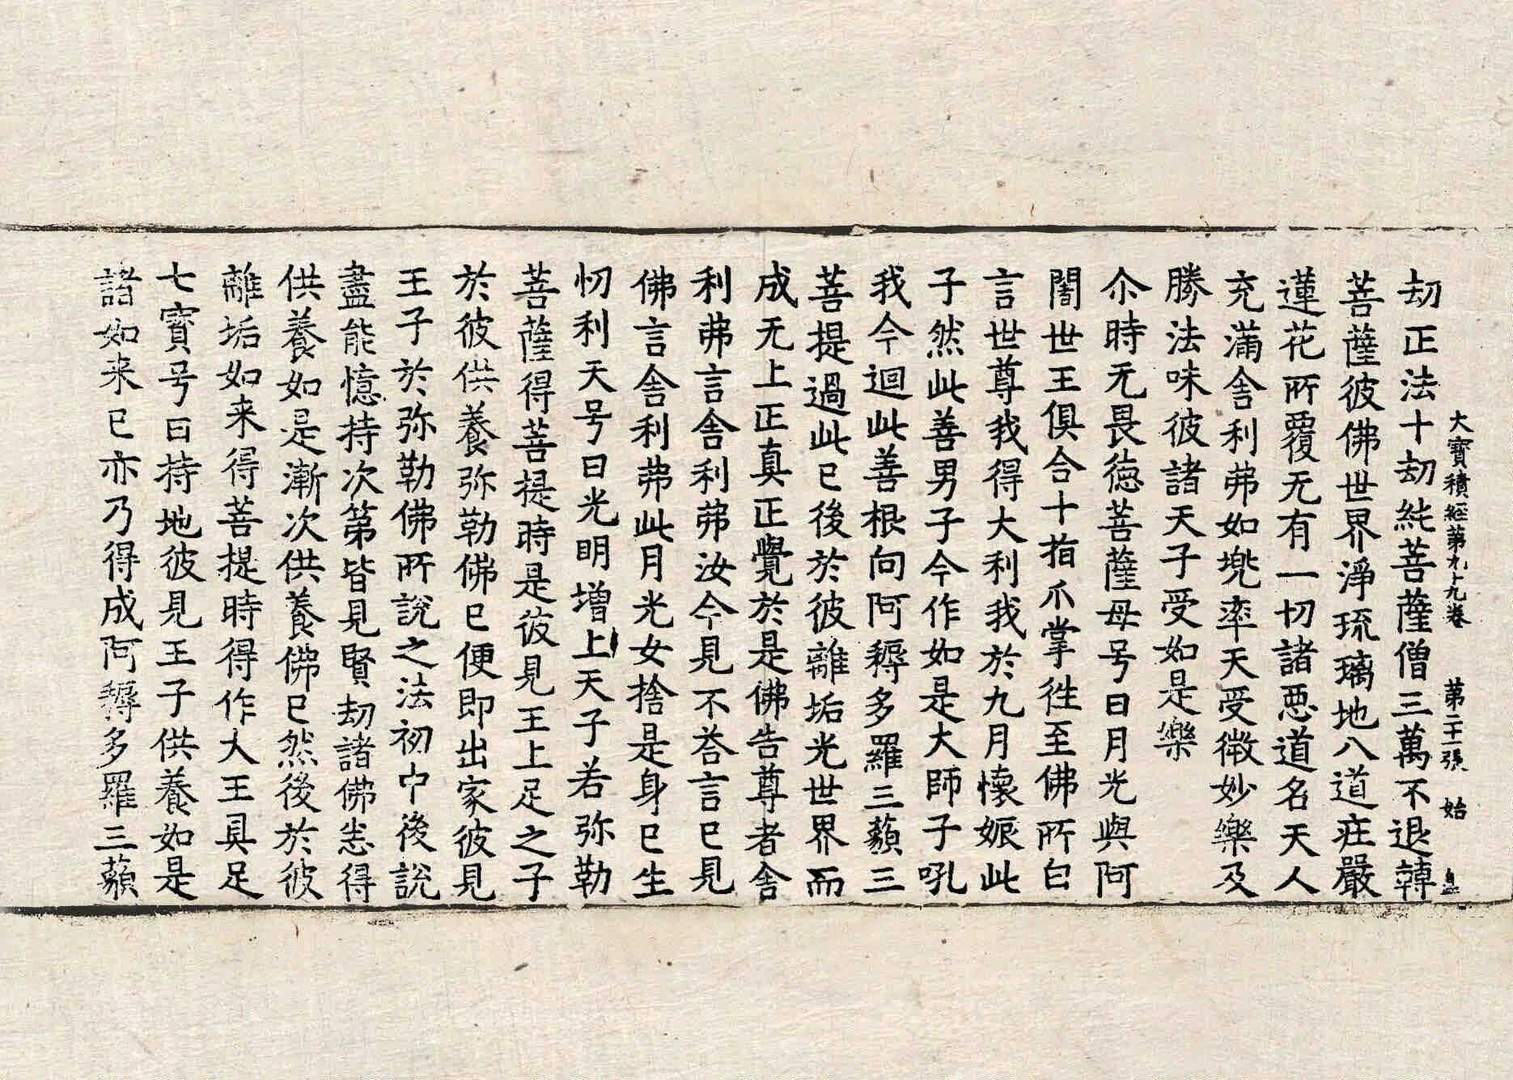 大寶積經第九十九卷 第二十一張 始
劫正法十劫純菩薩僧三萬不退轉
菩薩彼佛世界淨琉璃地八道庄嚴
蓮花所覆无有一切諸惡道名天人
充滿舍利弗如兠率天受微妙樂及
勝法味彼諸天子受如是樂
尒時无畏德菩薩母号曰月光與阿
闍世王俱合十指爪掌徃至佛所白
言世尊我得大利我於九月懷娠此
子然此善男子今作如是大師子吼
我今迴此善根向阿耨多羅三藐三
菩提過此已後於彼離垢光世界而
成无上正真正覺於是佛告尊者舍
利弗言舍利弗汝今見不荅言已見
佛言舍利弗此月光女捨是身已生
忉利天号曰光明增上天子若弥勒
菩薩得菩提時是彼見王上足之子
於彼供養弥勒佛已便即出家彼見
王子於弥勒佛所說之法初中後說
盡能憶持次第皆見賢劫諸佛悉得
供養如是漸次供養佛已然後於彼
離垢如来得菩提時得作大王具足
七寶号曰持地彼見王子供養如是
諸如来已亦乃得成阿耨多羅三藐